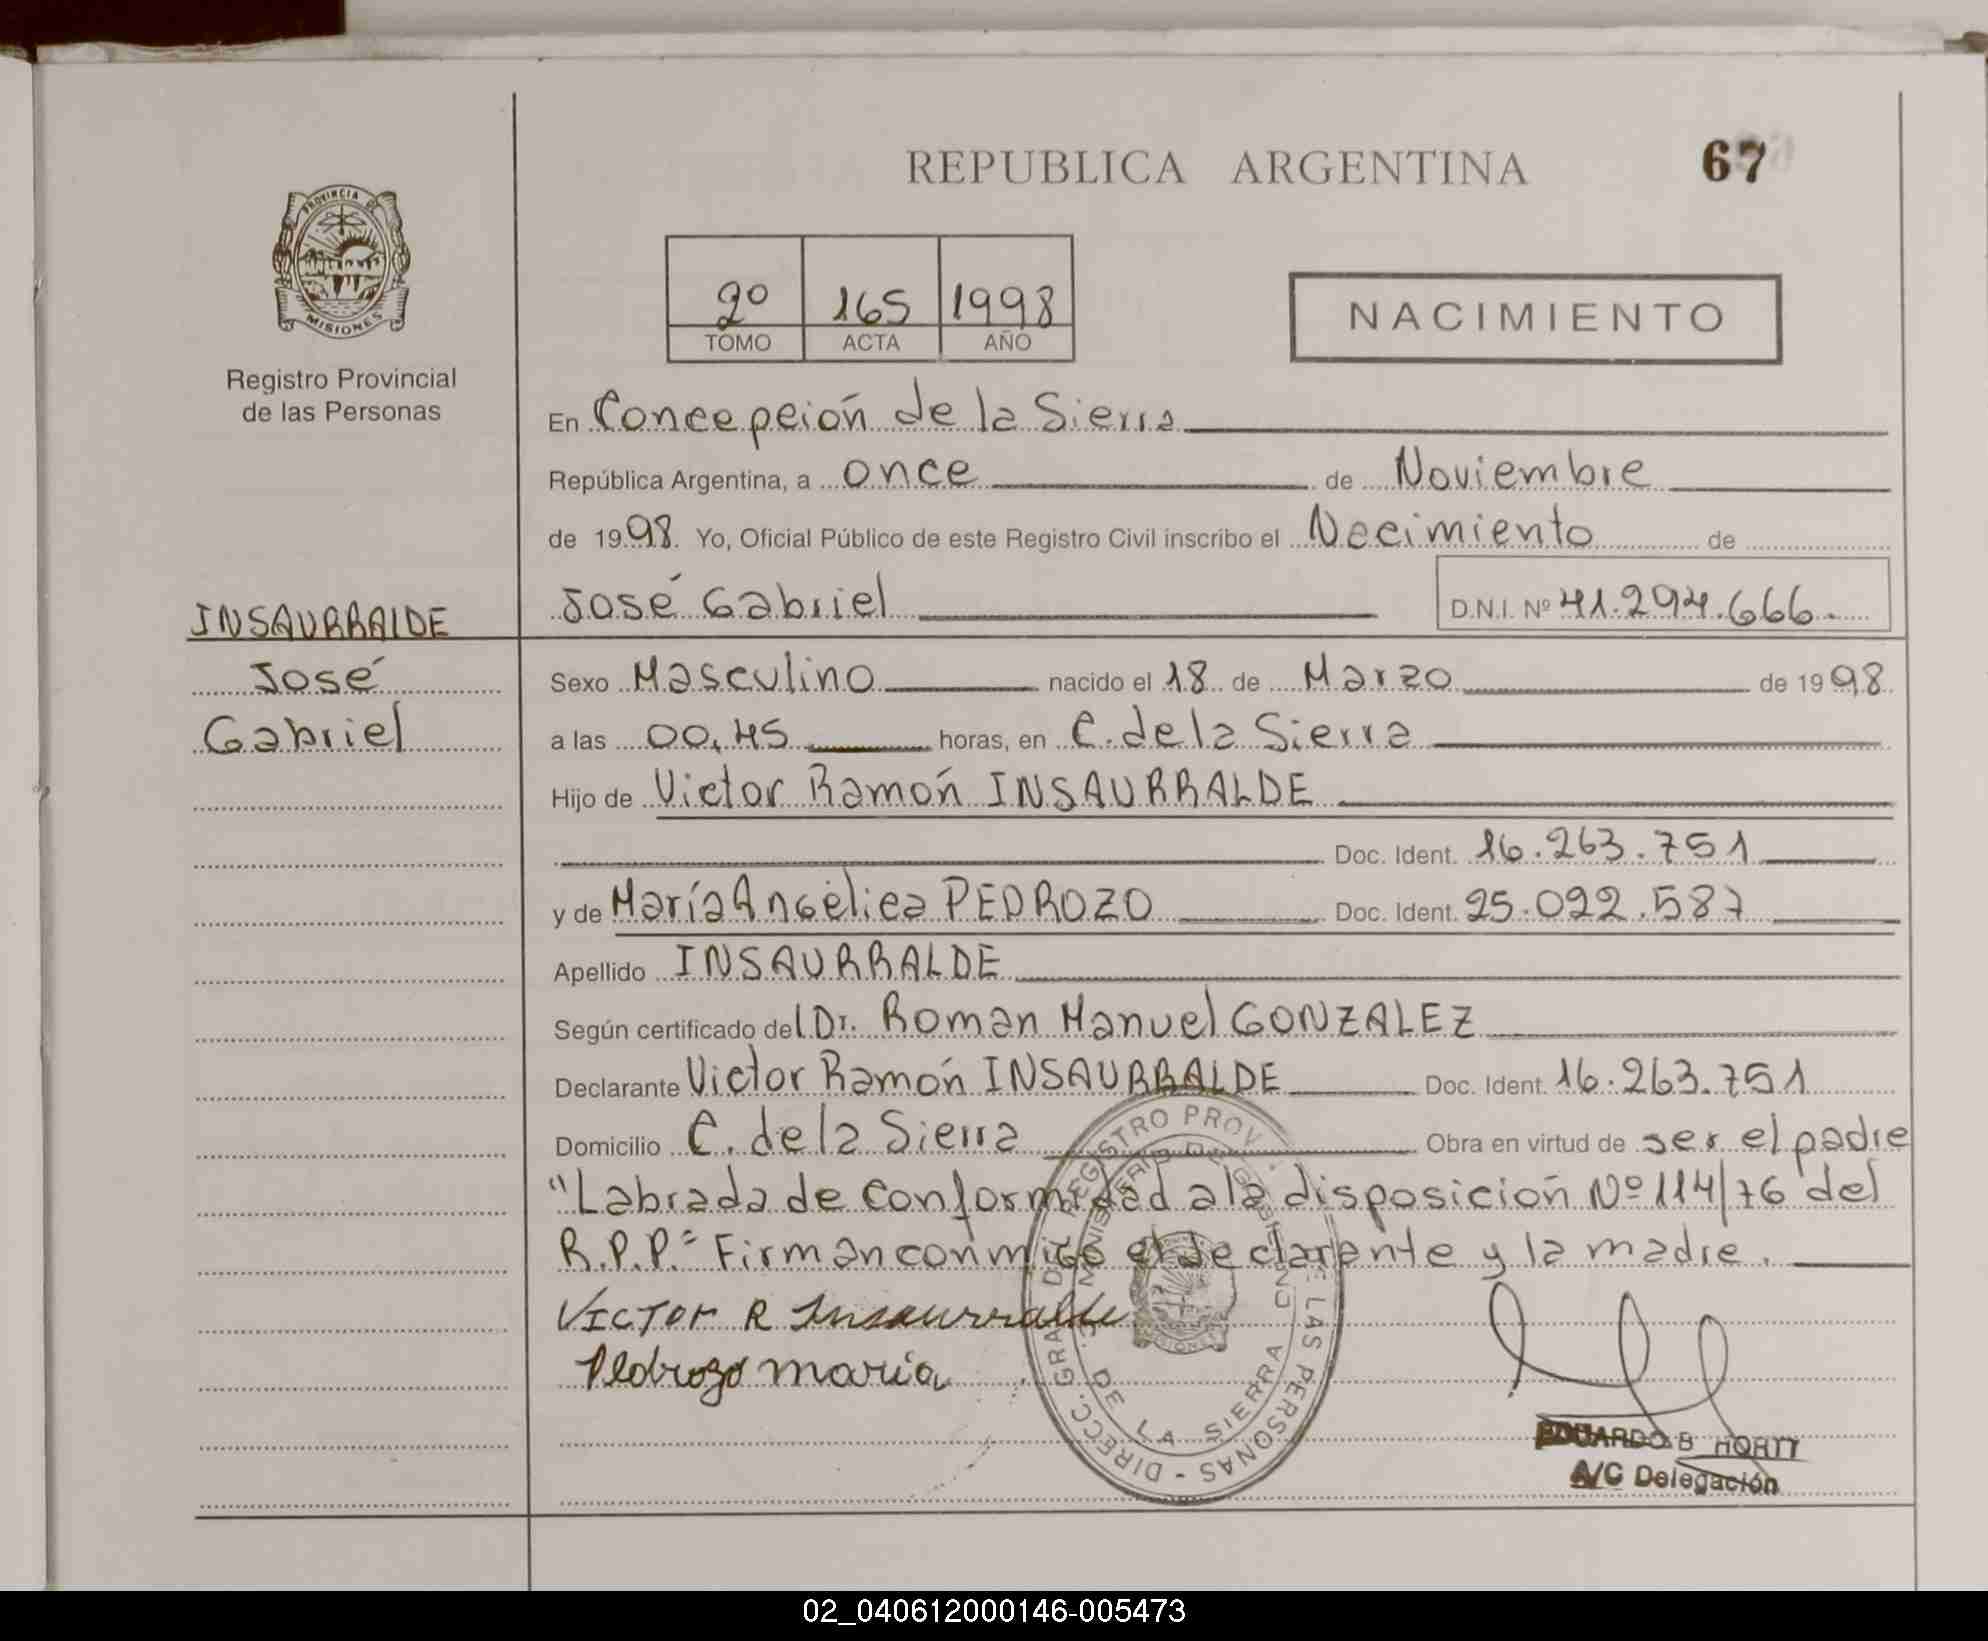 REPUBLICA ARGENTINA
67
PROVINCIA DE
MISIONES
Registro Provincial
de las Personas
2º 165 1998
TOMO ACTA AÑO
NACIMIENTO
En Concepción de la Sierra
República Argentina, a once de Noviembre
de 1998. Yo, Oficial Público de este Registro Civil inscribo el Nacimiento de
José Gabriel D.N.I. Nº 41.294.666.
INSAURRALDE
José
Gabriel
Sexo Masculino nacido el 18 de Marzo de 1998
a las 00,45 horas, en C. de la Sierra
Hijo de Victor Ramón INSAURRALDE
Doc. Ident. 16.263.751
y de María Angélica PEDROZO Doc. Ident. 25.022.587
Apellido INSAURRALDE
Según certificado del Dr. Roman Manuel GONZALEZ
Declarante Victor Ramón INSAURRALDE Doc. Ident. 16.263.751
Domicilio C. de la Sierra Obra en virtud de ser el padre
"Labrada de conformidad a la disposición Nº 114/76 del
R.P.P." Firman conmigo el declarante y la madre.
VICTOR R Insaurralde
Pedrozo maria
DIRECC. GRAL DEL REGISTRO PROV. DE LAS PERSONAS
MINISTERIO DE GOBIERNO
DE LA SIERRA
EDUARDO B
A/C Delegación
02_040612000146-005473